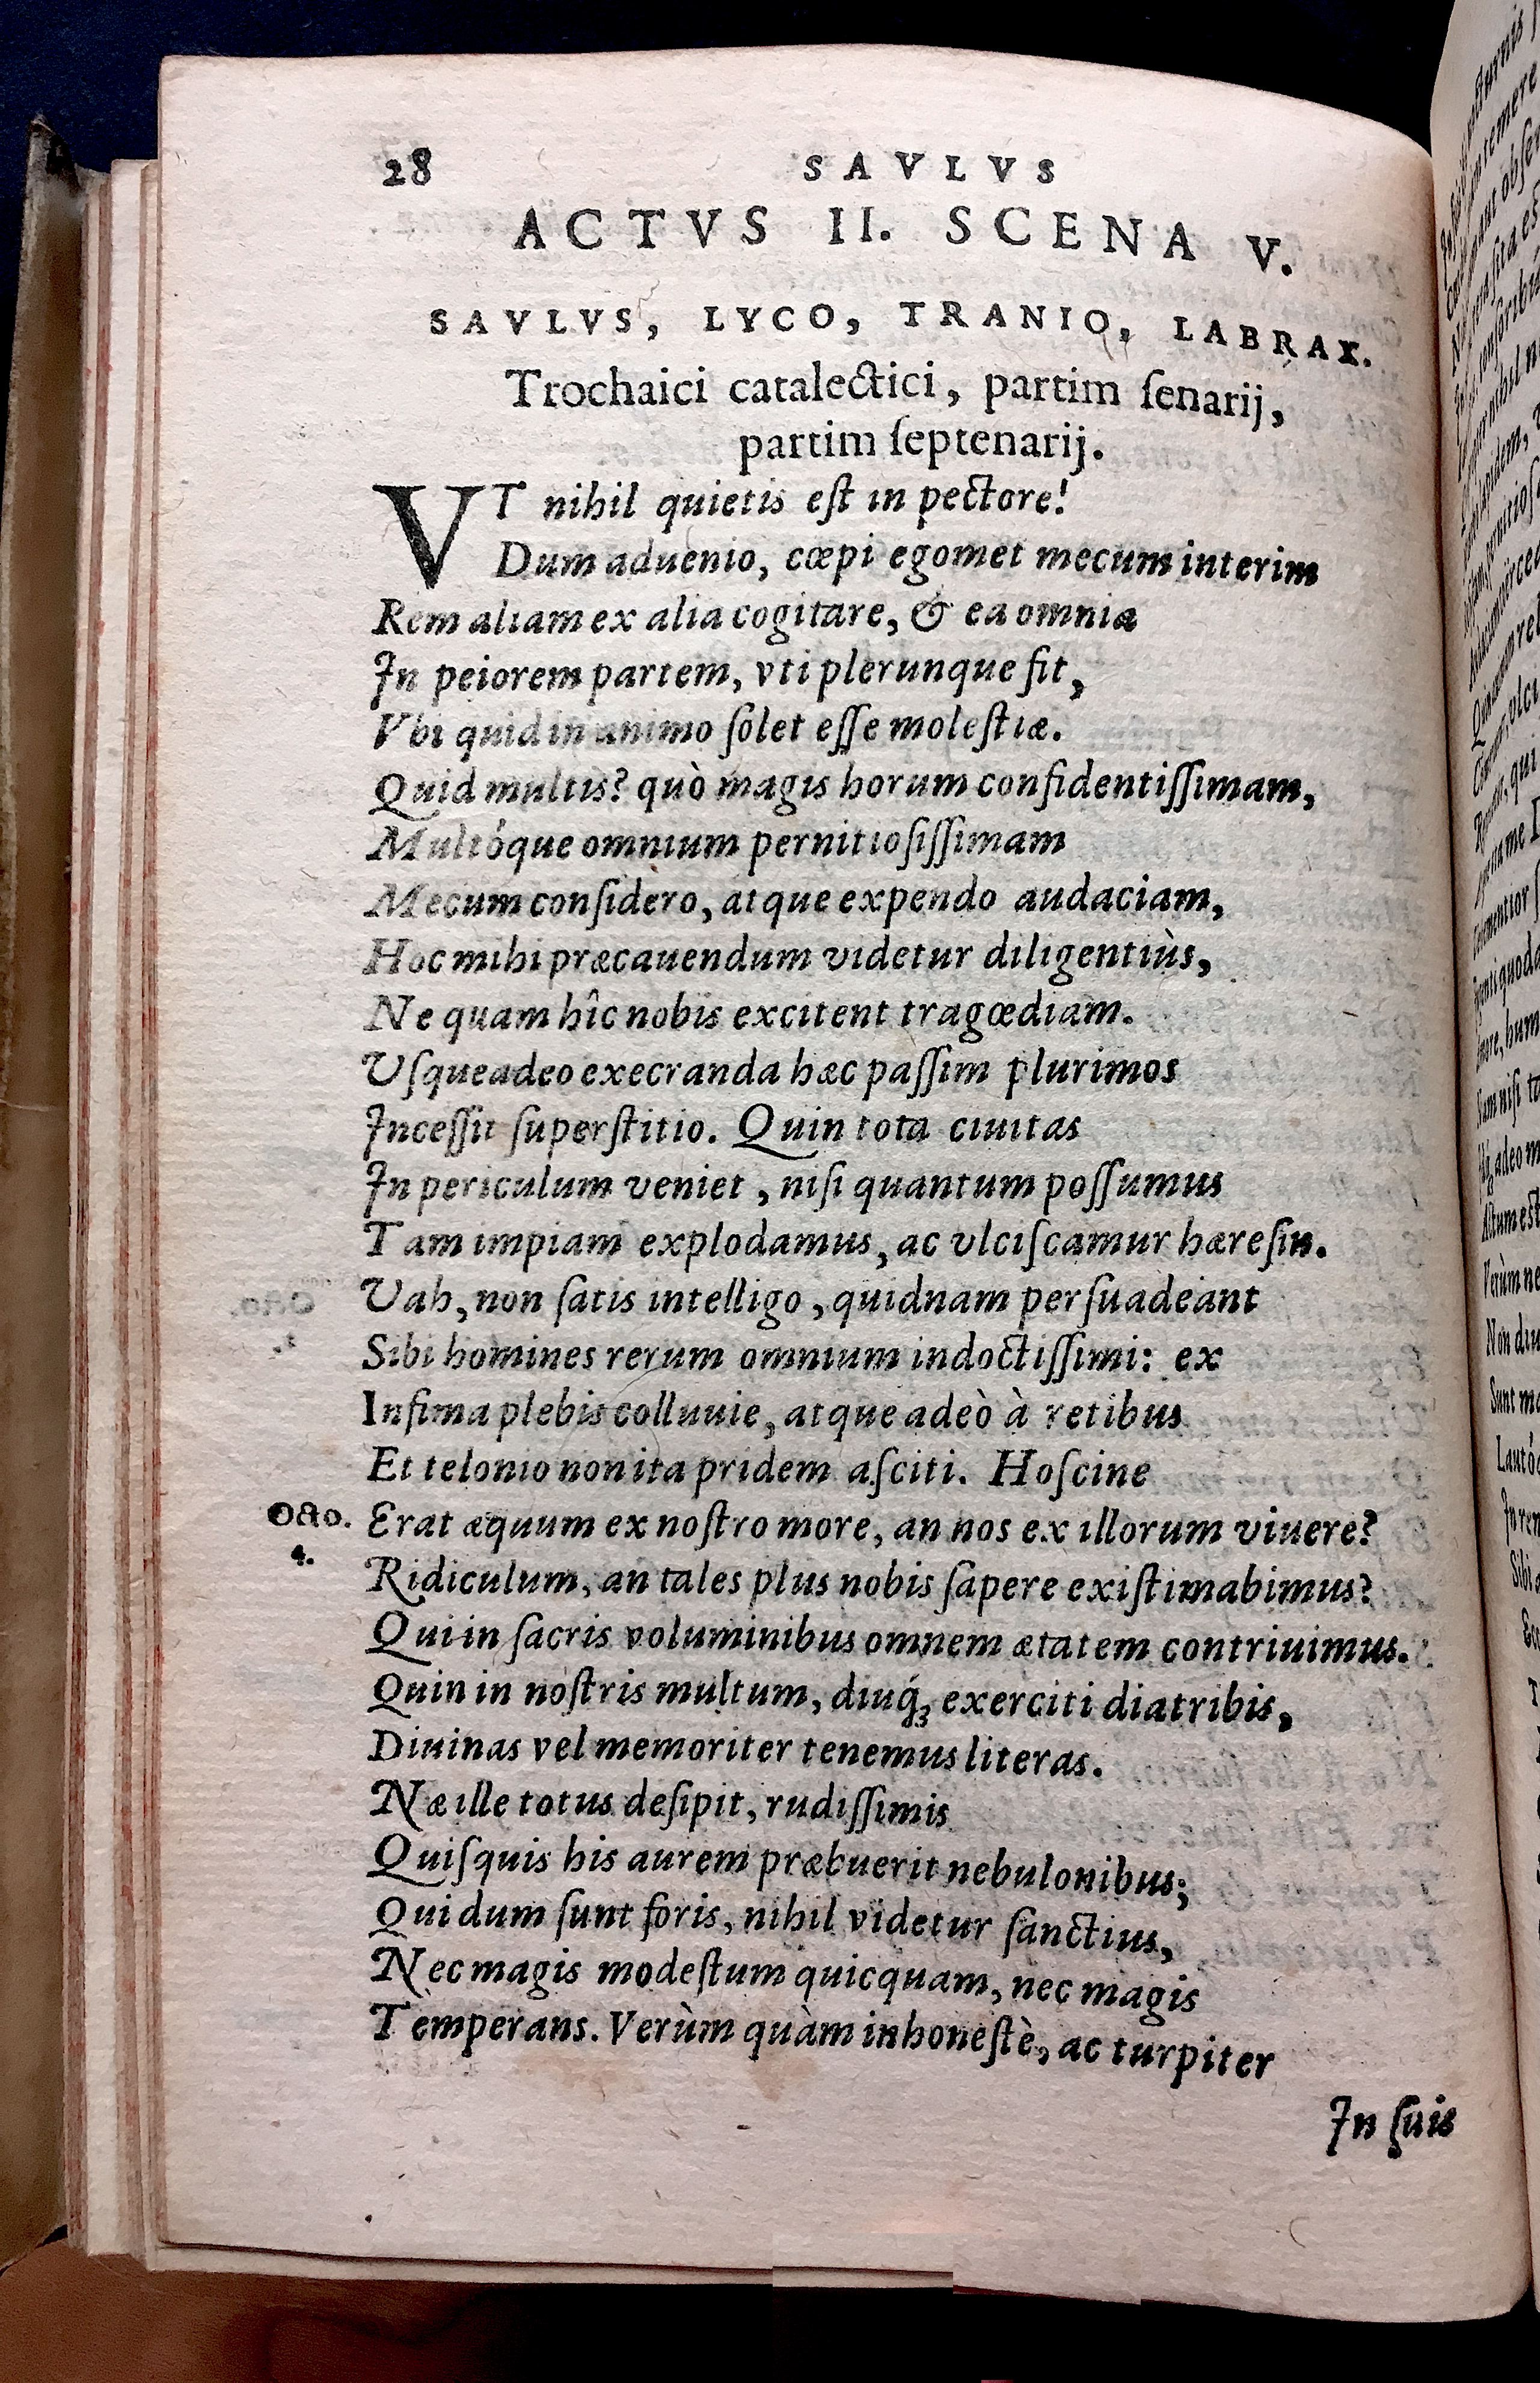 28 SAVLVS
ACTVS II. SCENA V.
SAVLVS, LYCO, TRANIO, LABRAX.
Trochaici catalectici, partim ſenarij,
partim ſeptenarij.
VT nihil quietis eſt in pectore!
Dum aduenio, cœpi egomet mecum interim
Rem aliam ex alia cogitare, & ea omnia
In peiorem partem, vti plerunque fit,
Vbi quid in animo ſolet eſſe moleſtiæ.
Quid multis? quò magis horum confidentiſſimam,
Multóque omnium pernitioſiſſimam
Mecum conſidero, atque expendo audaciam,
Hoc mihi præcauendum videtur diligentiùs,
Ne quam hîc nobis excitent tragœdiam.
Uſqueadeo execranda hæc paſſim plurimos
Inceſſit ſuperſtitio. Quin tota ciuitas
In periculum veniet, niſi quantum poſſumus
Tam impiam explodamus, ac vlciſcamur hæreſin.
Uah, non ſatis intelligo, quidnam perſuadeant
Sibi homines rerum omnium indoctiſſimi: ex
Infima plebis colluuie, atque adeò à retibus
Et telonio non ita pridem aſciti. Hoſcine
Octo. Erat æquum ex noſtro more, an nos ex illorum viuere?
4. Ridiculum, an tales plus nobis ſapere exiſtimabimus?
Qui in ſacris voluminibus omnem ætatem contriuimus.
Quin in noſtris multum, diuq́ꝫ exerciti diatribis,
Diuinas vel memoriter tenemus literas.
Næ ille totus deſipit, rudiſſimis
Quiſquis his aurem præbuerit nebulonibus;
Qui dum ſunt foris, nihil videtur ſanctius,
Nec magis modeſtum quicquam, nec magis
Temperans. Verùm quàm inhoneſtè, ac turpiter
In ſuis